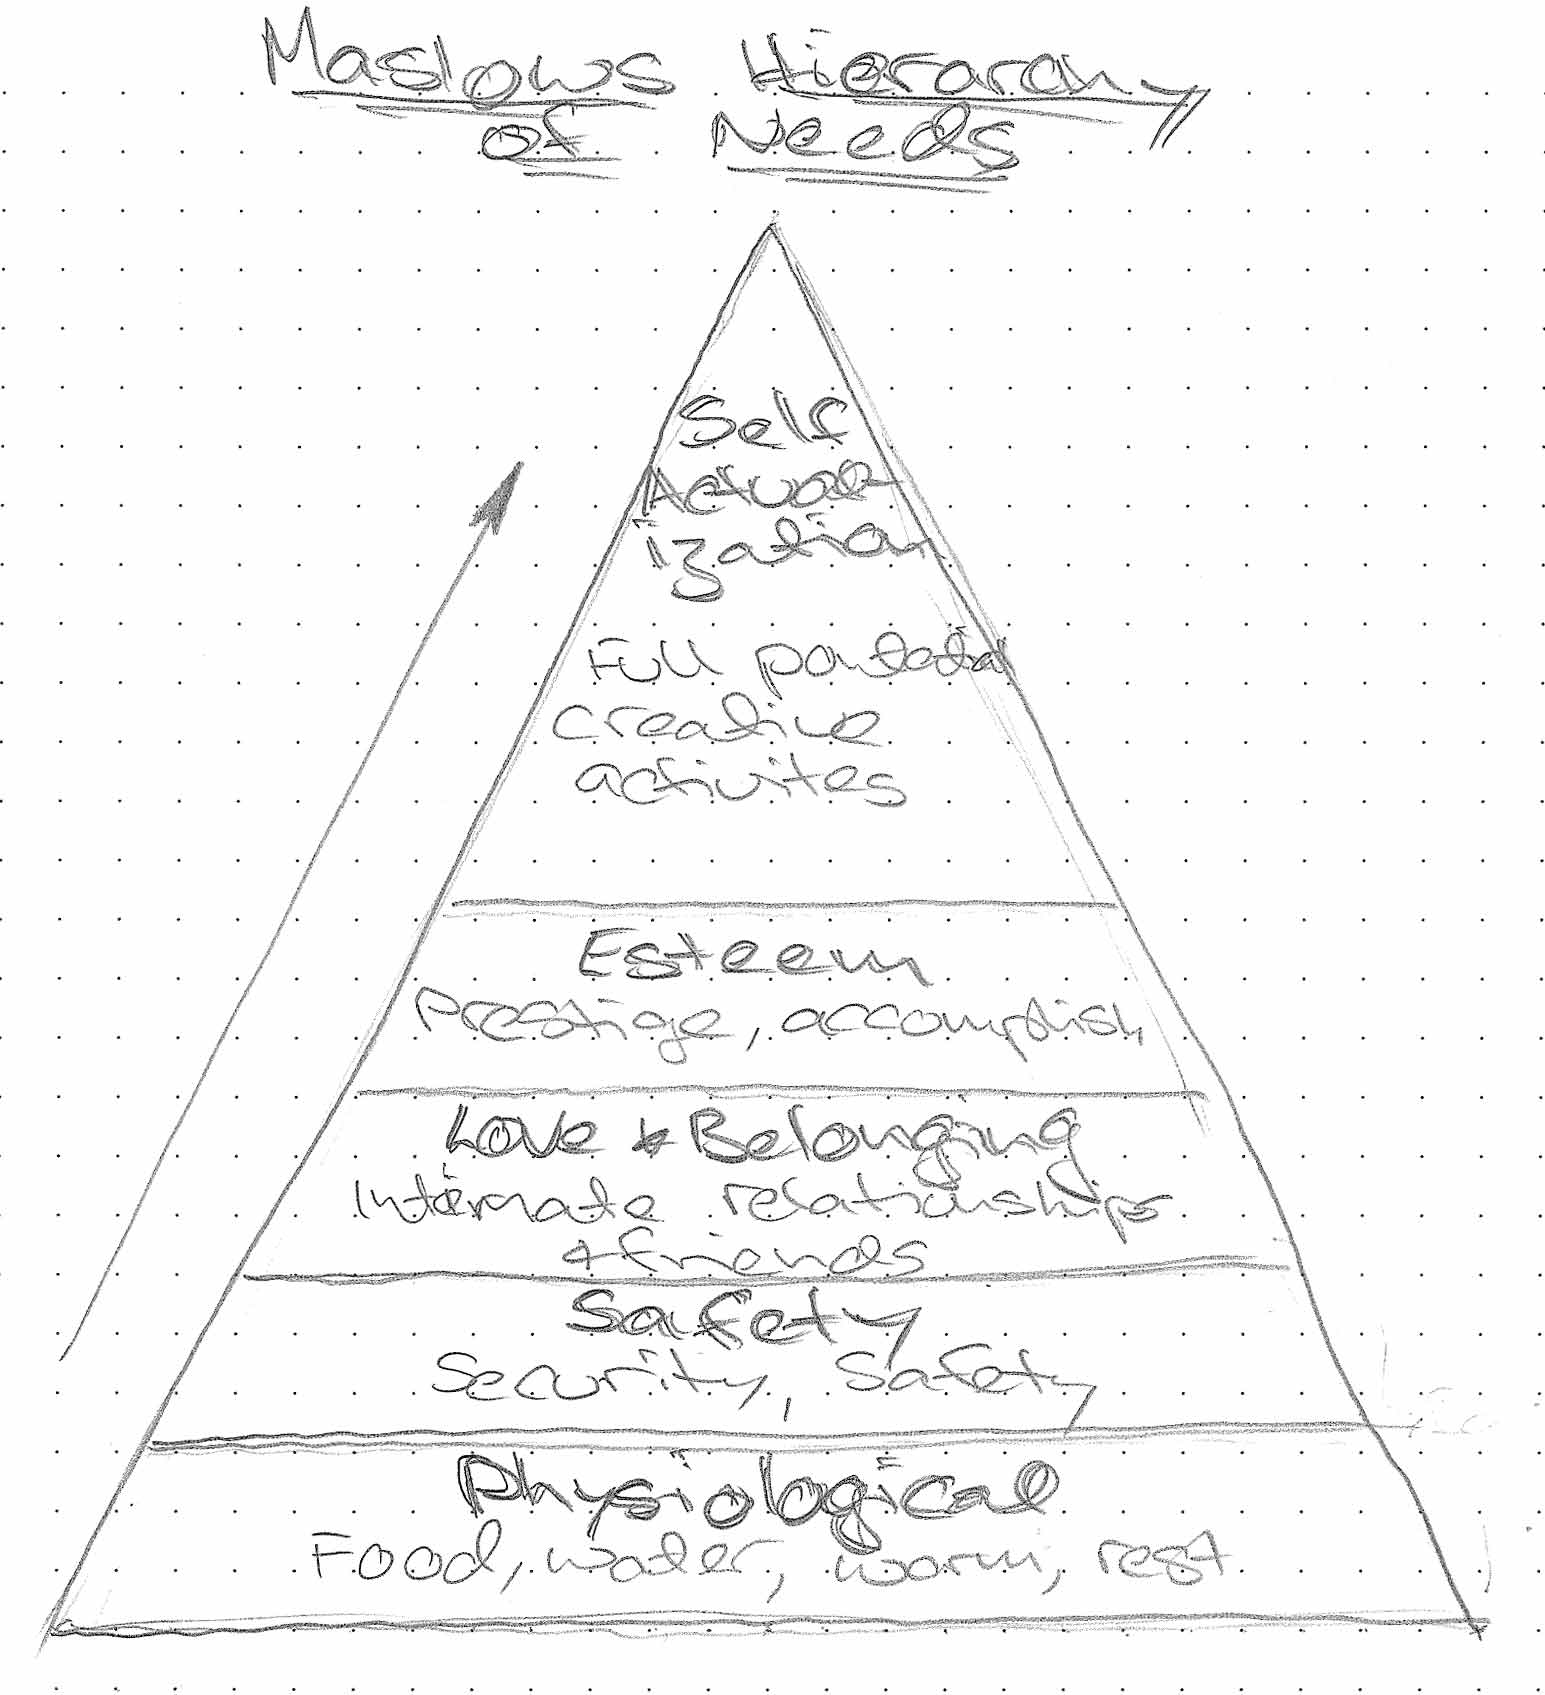 Maslows Hierarchy
of Needs
Self
Actual-
ization
Full pontetial
creative
activites
Esteem
Prestige, accomplish
Love & Belonging
Intimate relationships
& friends
Safety
Security, Safety
Physiological
Food, water, warm, rest